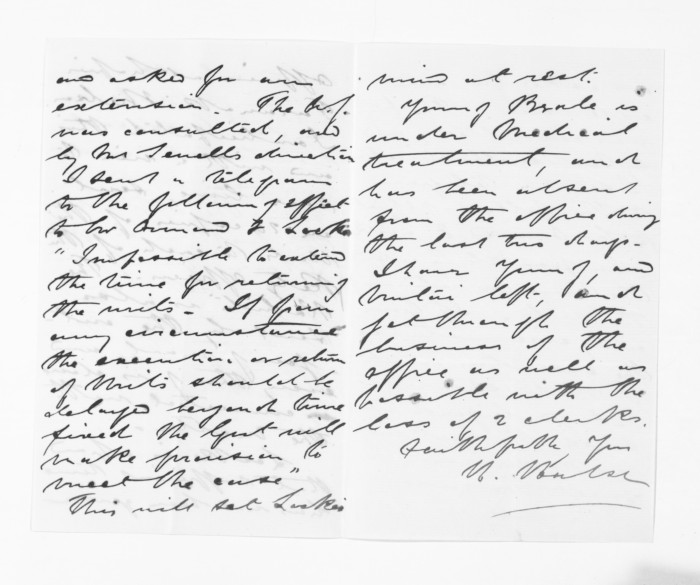 and asked for an
extension. The A.G.
was consulted, and
by Mr Sewells direction
I sent a telegram
to the following effect
to Mr Ormond & Locke
"Impossible to extend
the time for returning
the writs. If from
any circumstance
the execution or return
of Writs should be
delayed beyond time
fixed the Govt will
make provision to
meet the case"
This will set Lockes
mind at rest.
Young Beale is
under Medical
treatment, and
has been absent
from the office during
the last two days.
I have Young, and
left, and
get through the
business of the
office as well as
possible with the
loss of 2 clerks.
faithfully Yrs